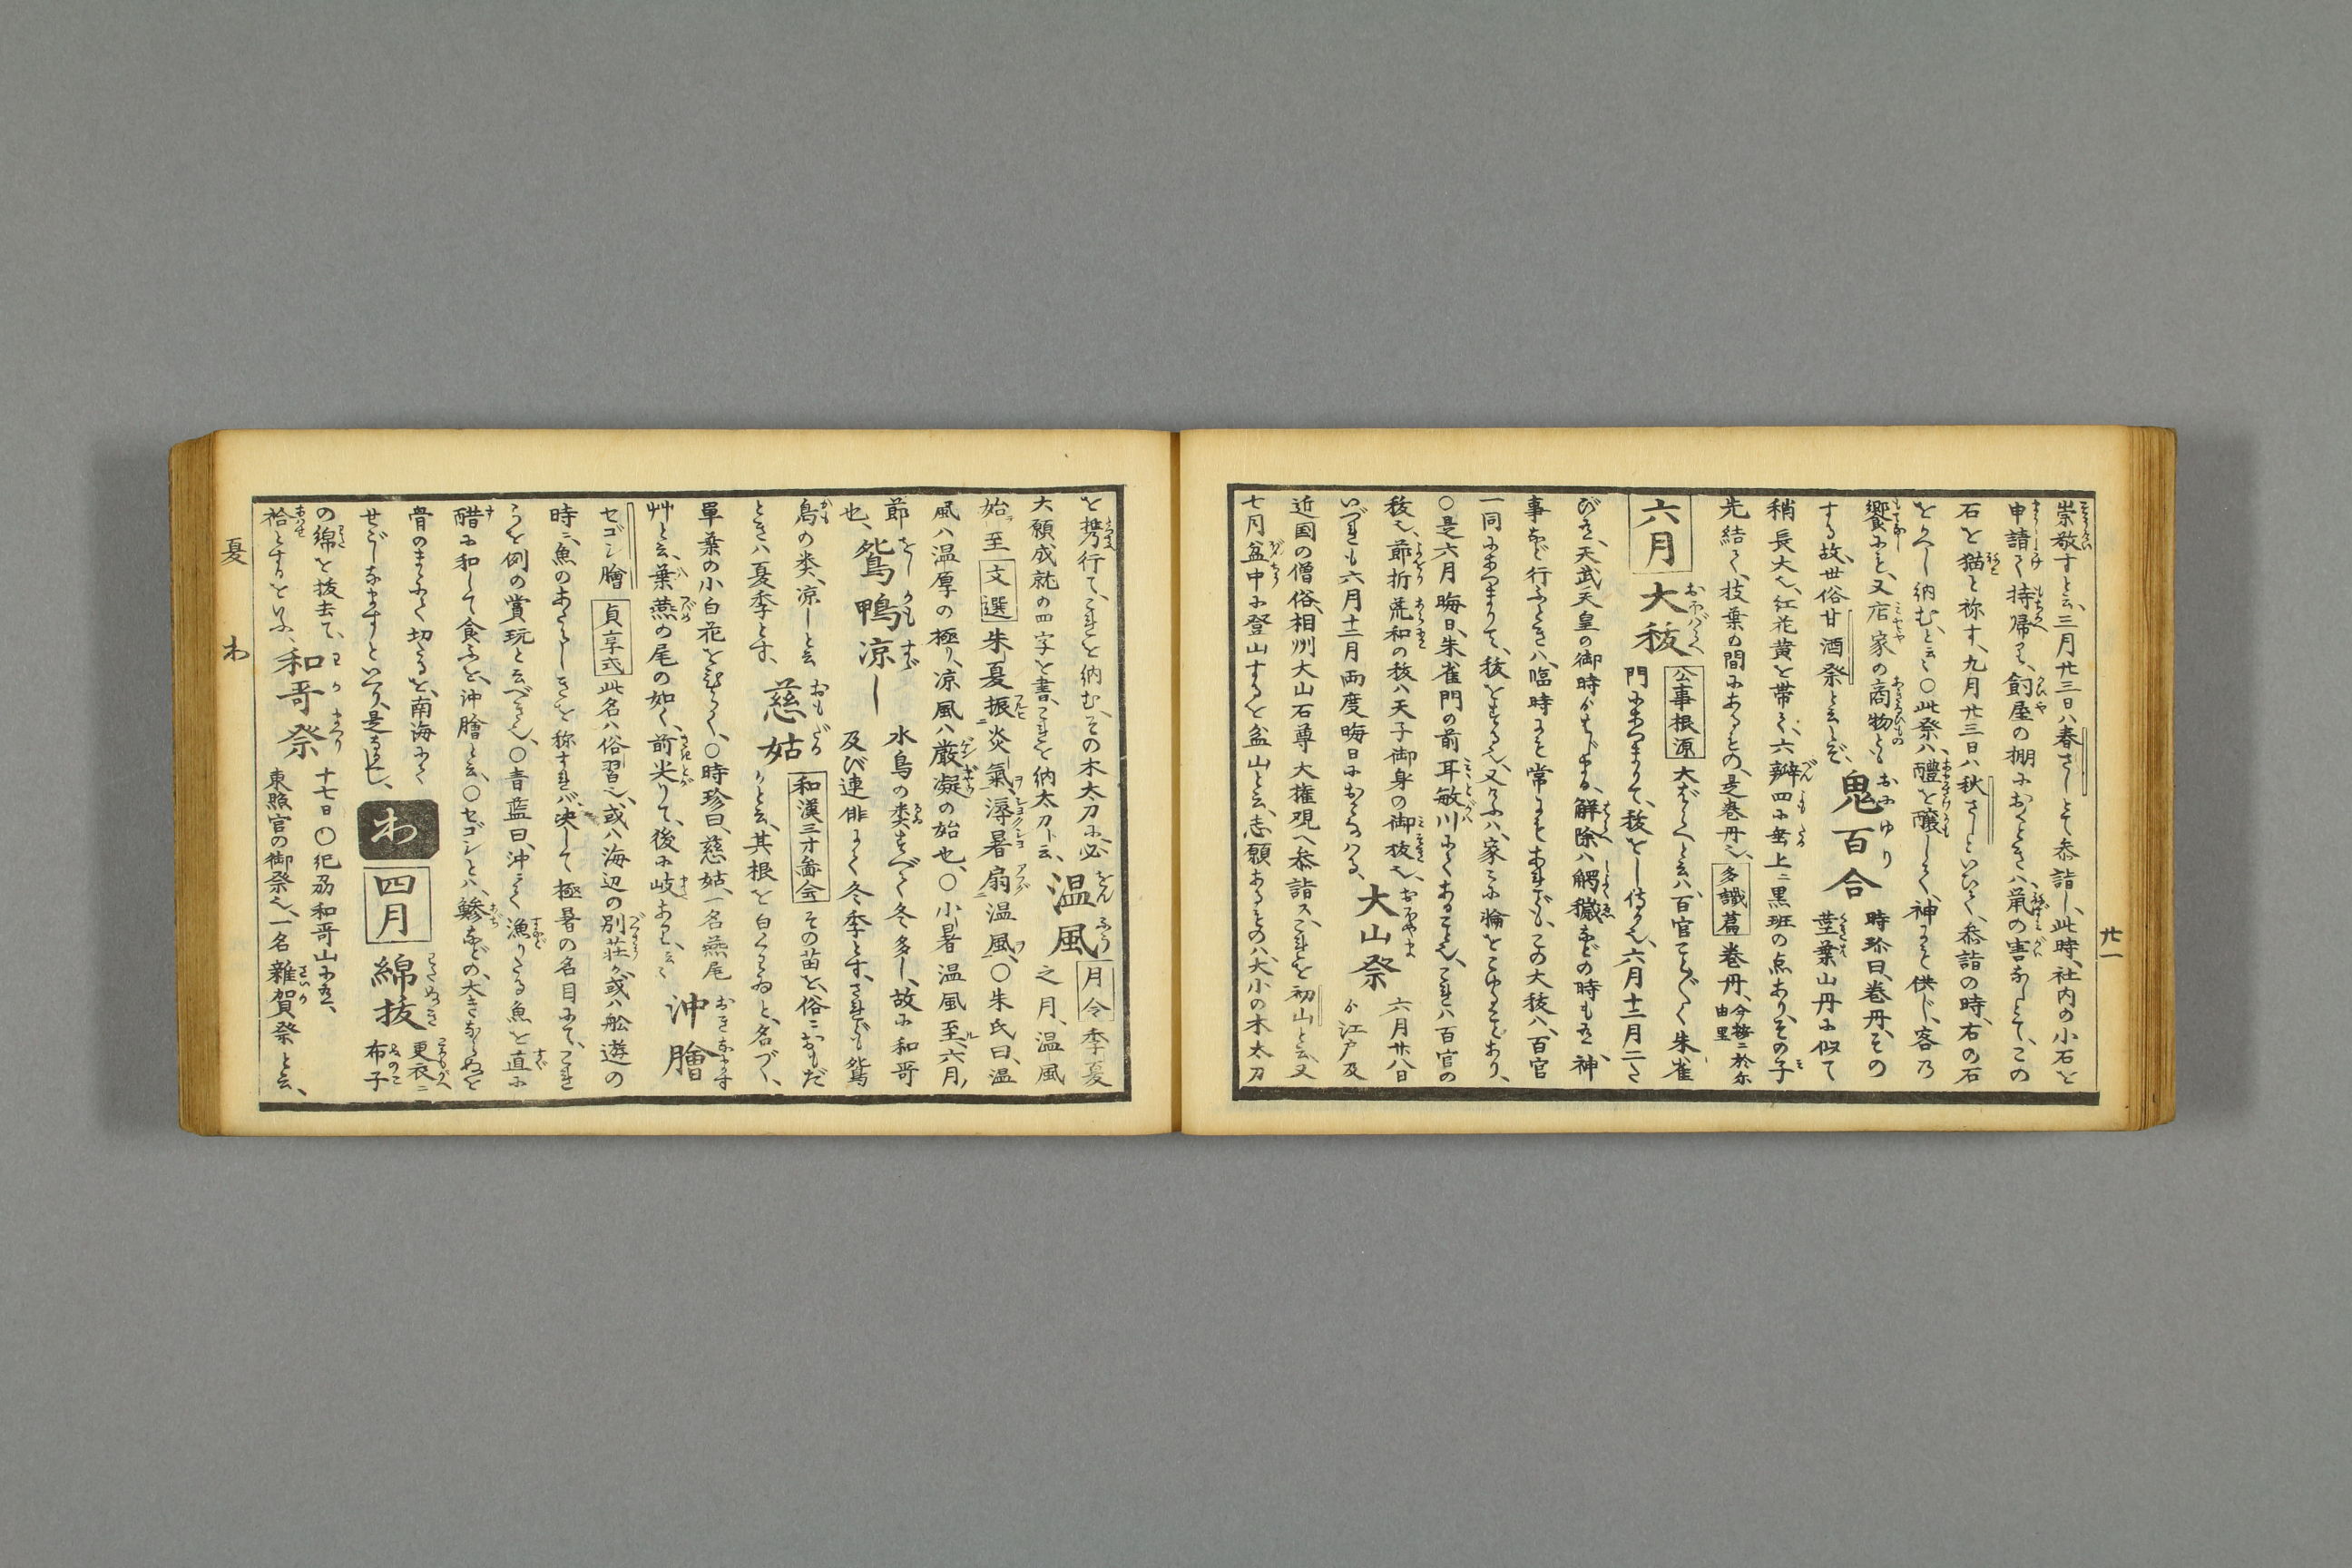 崇敬すと云、三月廿三日ハ春さしとて参詣し、此時、社内の小石を
申請て持帰りて、飼屋の棚におくときハ、鼠の害なしとて、この
石を猫と称す、九月廿三日ハ秋さしといひて、参詣の時、右の石
をかへし納む、と云々○此祭ハ、醴を醸して、神にも供じ、客乃
饗にも、又店家の商物とも
する故、世俗甘酒祭と云とぞ、
鬼百合
時珍曰、巻丹、その
莖葉山丹に似て
稍長大也、紅花黄を帯て、六瓣四に垂、上ニ黒斑の点あり、その子
先結て、枝葉の間にあるもの、是巻丹也、多識篇 巻丹、今按ニ於尓
由里
六月
大祓
公事根源 大ばらへと云ハ、百官ことごとく朱雀
門にあつまりて、祓をし侍る也、六月十二月二さ
び也、天武天皇の御時よりはじまる、解除ハ觸穢などの時も也、神
事など行ふときハ、臨時にも常にもあれども、この大祓ハ、百官
一同にあつまりて、祓をする也、又けふハ、家々に輪をこゆることあり、
○是六月晦日、朱雀門の前耳敏川にてあること也、これハ百官の
祓也、節折荒和の祓ハ天子御身の御祓也、
いづれも六月十二月両度晦日におこなハる、
大山祭
六月廿八日
より江戸及
近国の僧俗、相州大山石尊大権現へ参詣ス、これを初山と云、又
七月盆中に登山するを盆山と云、志願あるものハ、大小の木太刀
廿一
を携行て、これを納む、その木太刀に必
大願成就の四字を書、これを納太刀ト云、
温風
月令 季夏
之月、温風
始至 文選 朱夏振炎氣、溽暑扇温風、○朱氏曰、温
風ハ温厚の極り、凉風ハ厳凝の始也、○小暑温風至、六月ノ
節
也、
鴛鴨凉し
水鳥の類すべて冬多し、故に和哥
及び連俳にて冬季とす、されども鴛
鳥の类、凉しと云
ときハ夏季とす、
慈姑
和漢三才圖会 その苗を、俗ニおもだ
かと云、其根を白くわゐと、名づく、
單葉の小白花をひらく、○時珍曰、慈姑、一名燕尾
艸と云、葉燕の尾の如く、前尖りて、後に岐ある、云々
沖膾
セゴシ膾 貞享式 此名ハ俗習也、或ハ海辺の別荘、或ハ舩遊の
時ニ、魚のあたらしきを称すれバ、决して極暑の名目にて、これ
らを例の賞玩と云べき也、○青藍曰、沖にて漁りたる魚を直に
醋に和して食ふを、沖膾と云、○セゴシとハ、鯵などの、大きならぬを
骨のまゝにて切たるを、南海にて
せごしなますといへり、是なるべし、
わ
四月
綿抜
更衣ニ
布子
の綿を抜去て、
袷とするをいふ、
和哥祭
十七日○紀刕和哥山に在、
東照宮の御祭也、一名雜賀祭と云、
夏 わ